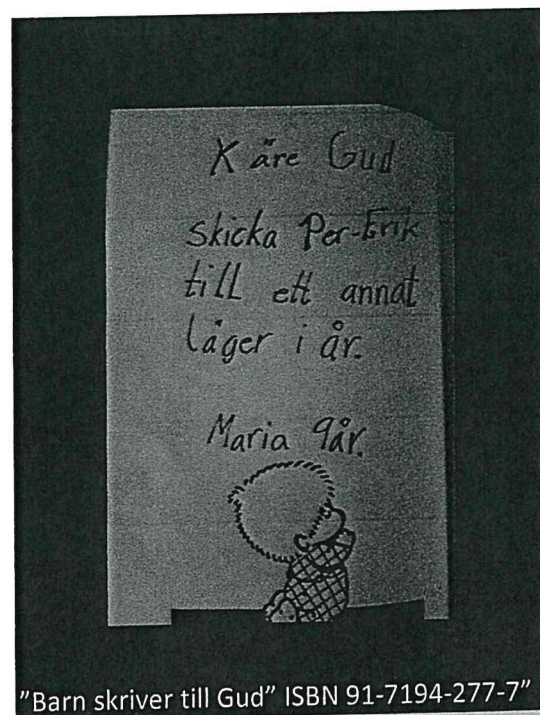 Käre Gud
Skicka Per-Erik
till ett annat
läger i år.
Maria 9år.
"Barn skriver till Gud" ISBN 91-7194-277-7"